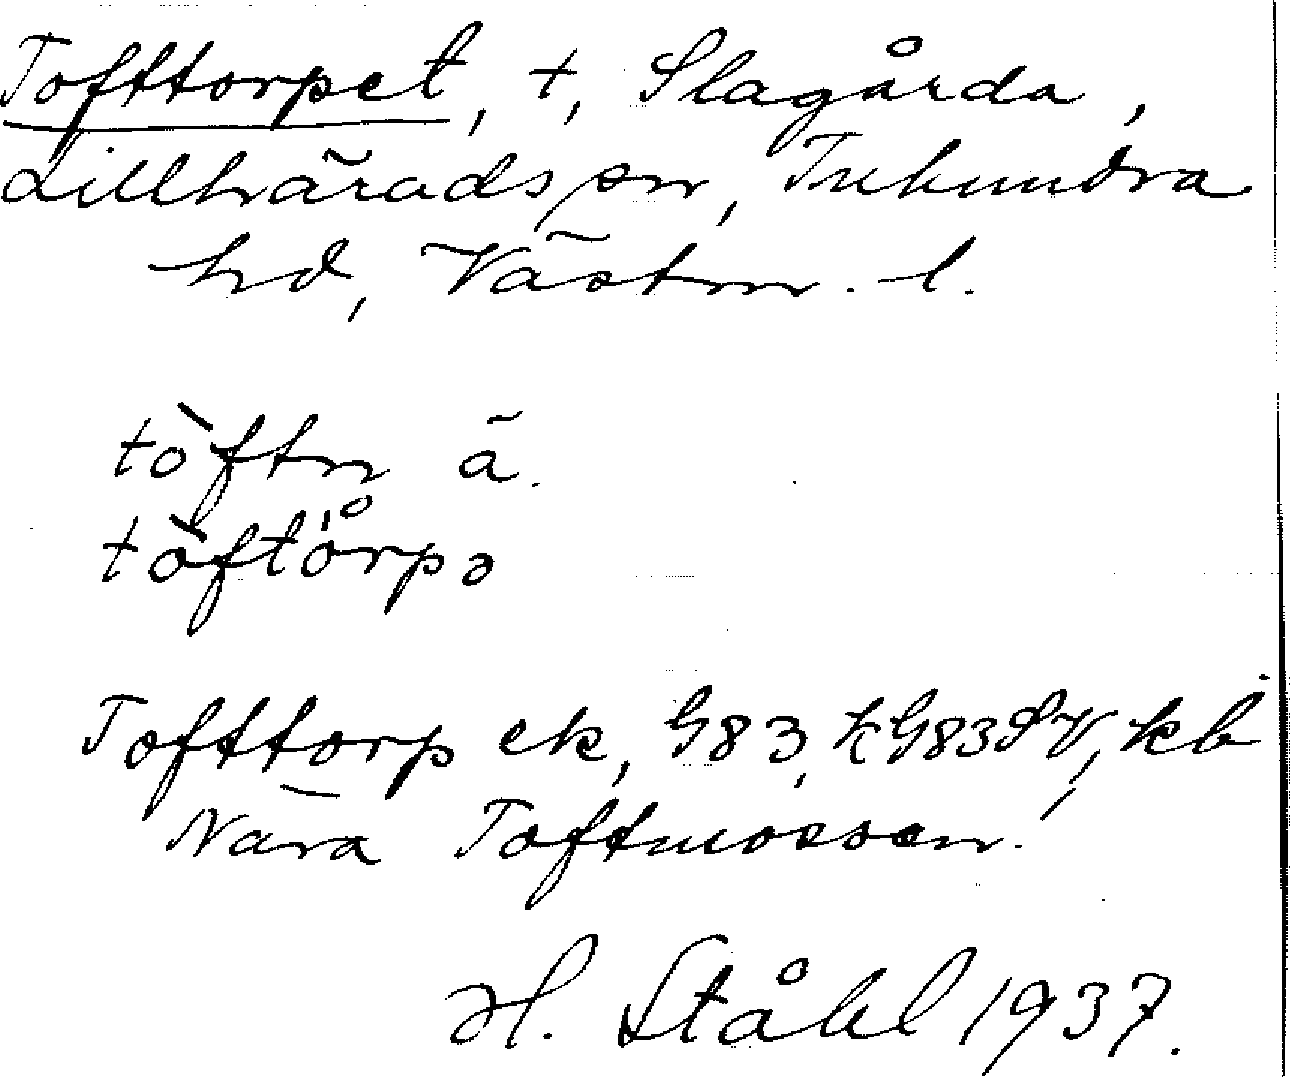 Tofttorpet, t, Slagårda,
Lillhärads sn, Tuhundra
hd, Västm. l.
tòftn ä.
tòftórpə
Tofttorp ek, G83, kG83 kb
Nära Toftmossen.
H. Ståhl 1937.